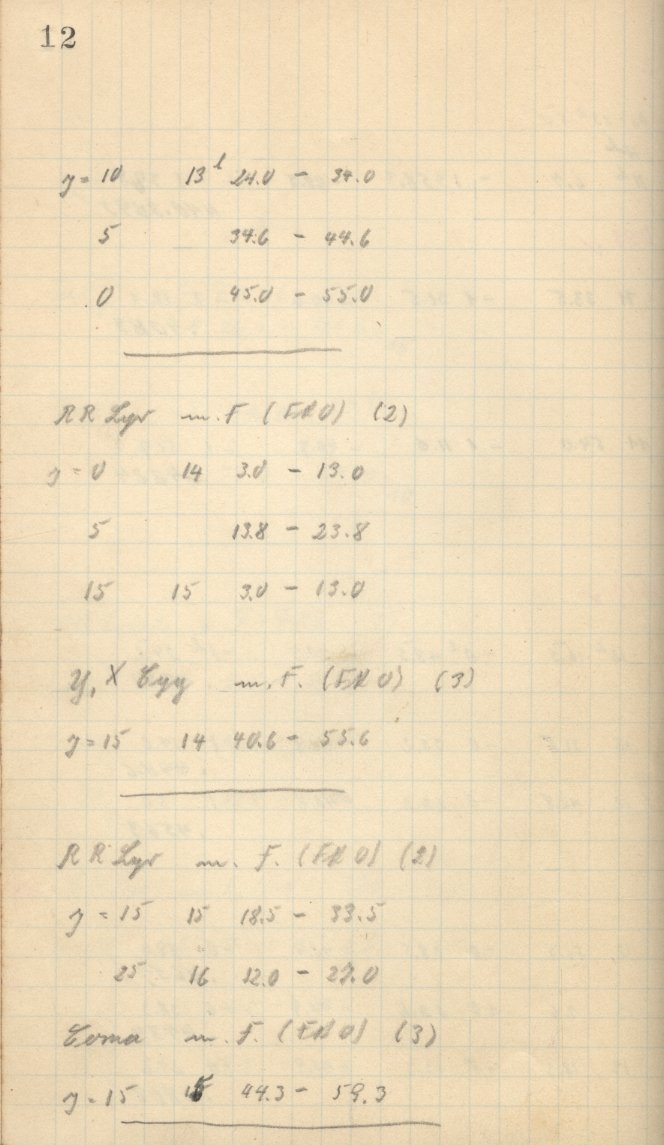 12
y = 10 13 24.0 - 34.0
5 34.6 - 44.6
0 45.0 - 55.0
RR Lyr m. F (ERO) (2)
y = 0 14 3.0 - 13.0
5 13.8 - 23.8
15 15 3.0 - 13.0
Y, X Cyg m. F. (ERO) (3)
y = 15 14 40.6 - 55.6
RR Lyr m. F. (ERO) (2)
y = 15 15 18.5 - 33.5
25 16 12.0 - 27.0
Coma m. F. (ERO) (3)
y = 15 15 44.3 - 59.3